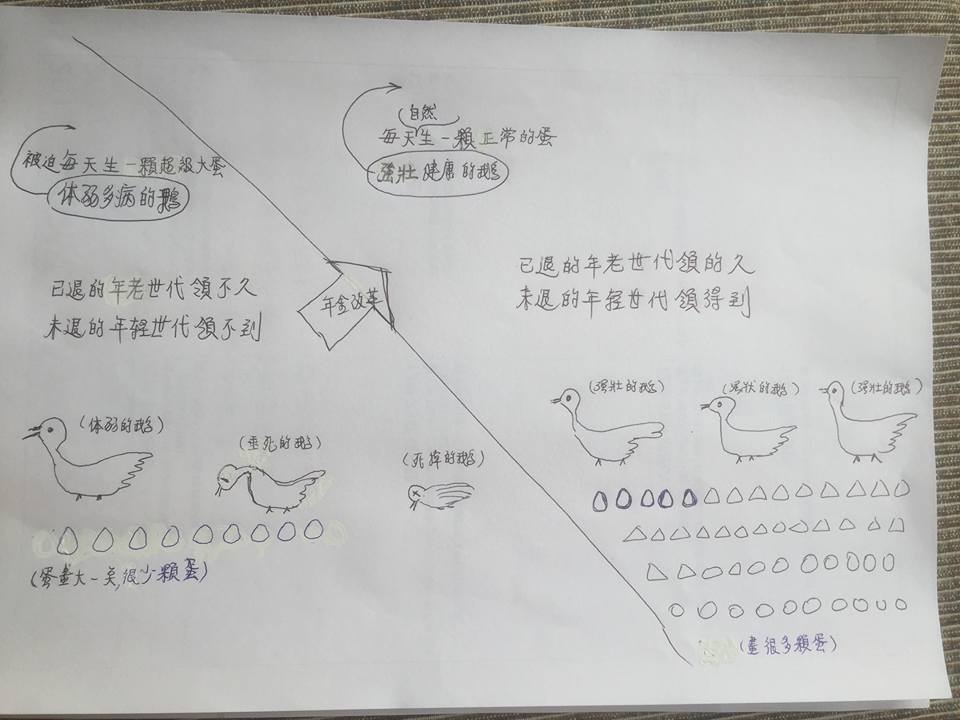 被迫每天生一顆超級大蛋
体弱多病的鵝
已退的年老世代領不久
未退的年轻世代領不到
(体弱的鵝)
(垂死的鵝)
(死掉的鵝)
(蛋畫大一臭,很少顆蛋)
年金改革
(自然)
每天生一顆正常的蛋
強壯健康的鵝
已退的年老世代領的久
未退的年轻世代領得到
(強壯的鵝)
(強壯的鵝)
(強壯的鵝)
(畫很多顆蛋)